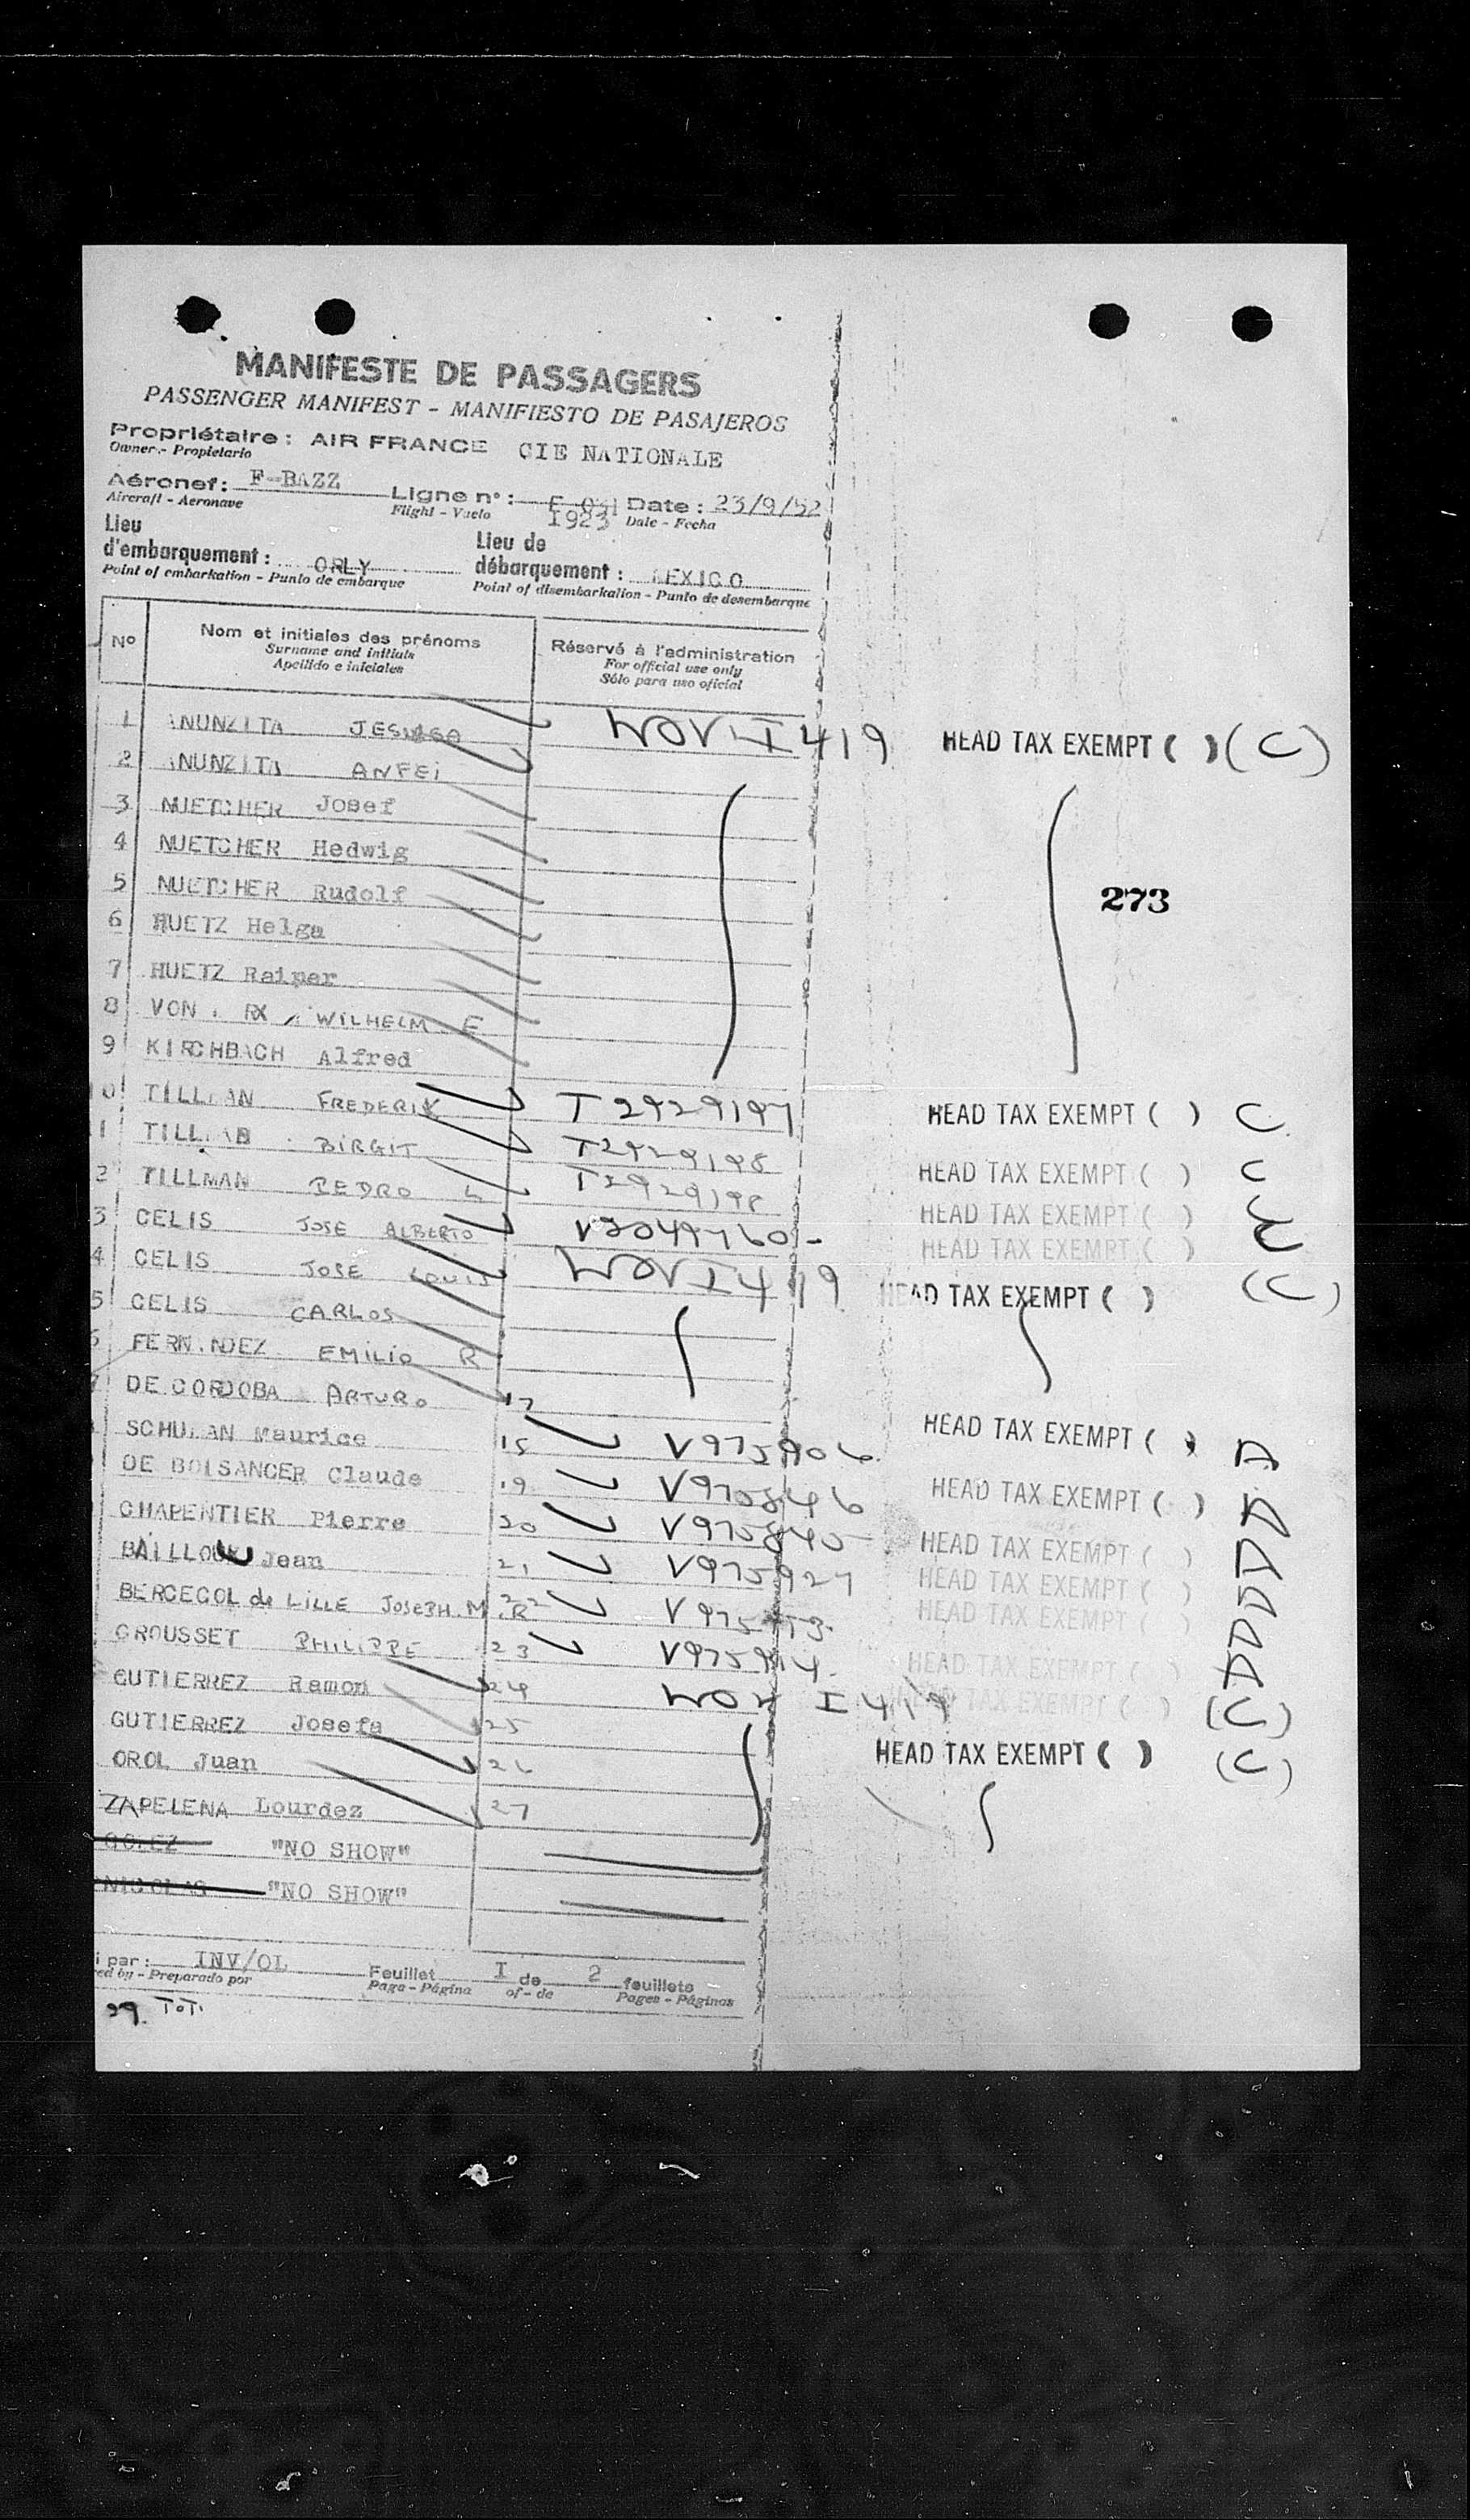 MANIFESTE DE PASSAGERS
PASSENGER MANIFEST - MANIFIESTO DE PASAJEROS
Propriétaire : AIR FRANCE CIE NATIONALE
Owner - Propietario
Aéronef : F-BAZZ Ligne n° : 1923 Date : 23/9/52
Aircraft - Aeronave Flight - Vuelo Date - Fecha
Lieu d'embarquement : ORLY Lieu de débarquement : MEXICO
Point of embarkation - Punto de embarque Point of disembarkation - Punto de desembarque
N° Nom et initiales des prénoms Réservé à l'administration
Surname and initials For official use only
Apellido e iniciales Sólo para uso oficial
1 ANUNZITA HEAD TAX EXEMPT ( ) (C)
2 ANUNZITA ANFEI
3 NUETCHER Josef
4 NUETCHER Hedwig
5 NUETCHER Rudolf 273
6 HUETZ Helga
7 HUETZ Rainer
8 VON WILHELM E
9 KIRCHBACH Alfred
0 TILLMAN FREDERIK T2929197 HEAD TAX EXEMPT ( ) C
1 TILLMAN BIRGIT T2929198 HEAD TAX EXEMPT ( ) C
2 TILLMAN PEDRO L HEAD TAX EXEMPT ( ) C
3 CELIS JOSE ALBERTO V2049760 HEAD TAX EXEMPT ( ) C
4 CELIS JOSE LOUIS HEAD TAX EXEMPT ( ) (C)
5 CELIS CARLOS
FERNANDEZ EMILIO R
7 DE CORDOBA ARTURO 17
SCHULAN Maurice V975906 HEAD TAX EXEMPT ( ) D
DE BOISANGER Claude 19 V975846 HEAD TAX EXEMPT ( ) D
CHAPENTIER Pierre 20 V975845 HEAD TAX EXEMPT ( ) D
BAILLOU Jean 21 V975927 HEAD TAX EXEMPT ( ) D
BERCEGOL de LILLE JOSEPH.M.R 22 HEAD TAX EXEMPT ( ) D
GROUSSET PHILIPPE 23 V975914 HEAD TAX EXEMPT ( ) D
GUTIERREZ Ramon 24 TAX EXEMPT ( ) (C)
GUTIERREZ Josefa 25 HEAD TAX EXEMPT ( ) (C)
OROL Juan 26
ZAPELENA Lourdez 27
"NO SHOW"
"NO SHOW"
par : INV/OL Feuillet I de 2 feuillets
ed by - Preparado por Page - Página of - de Pages - Páginas
29. TOT.